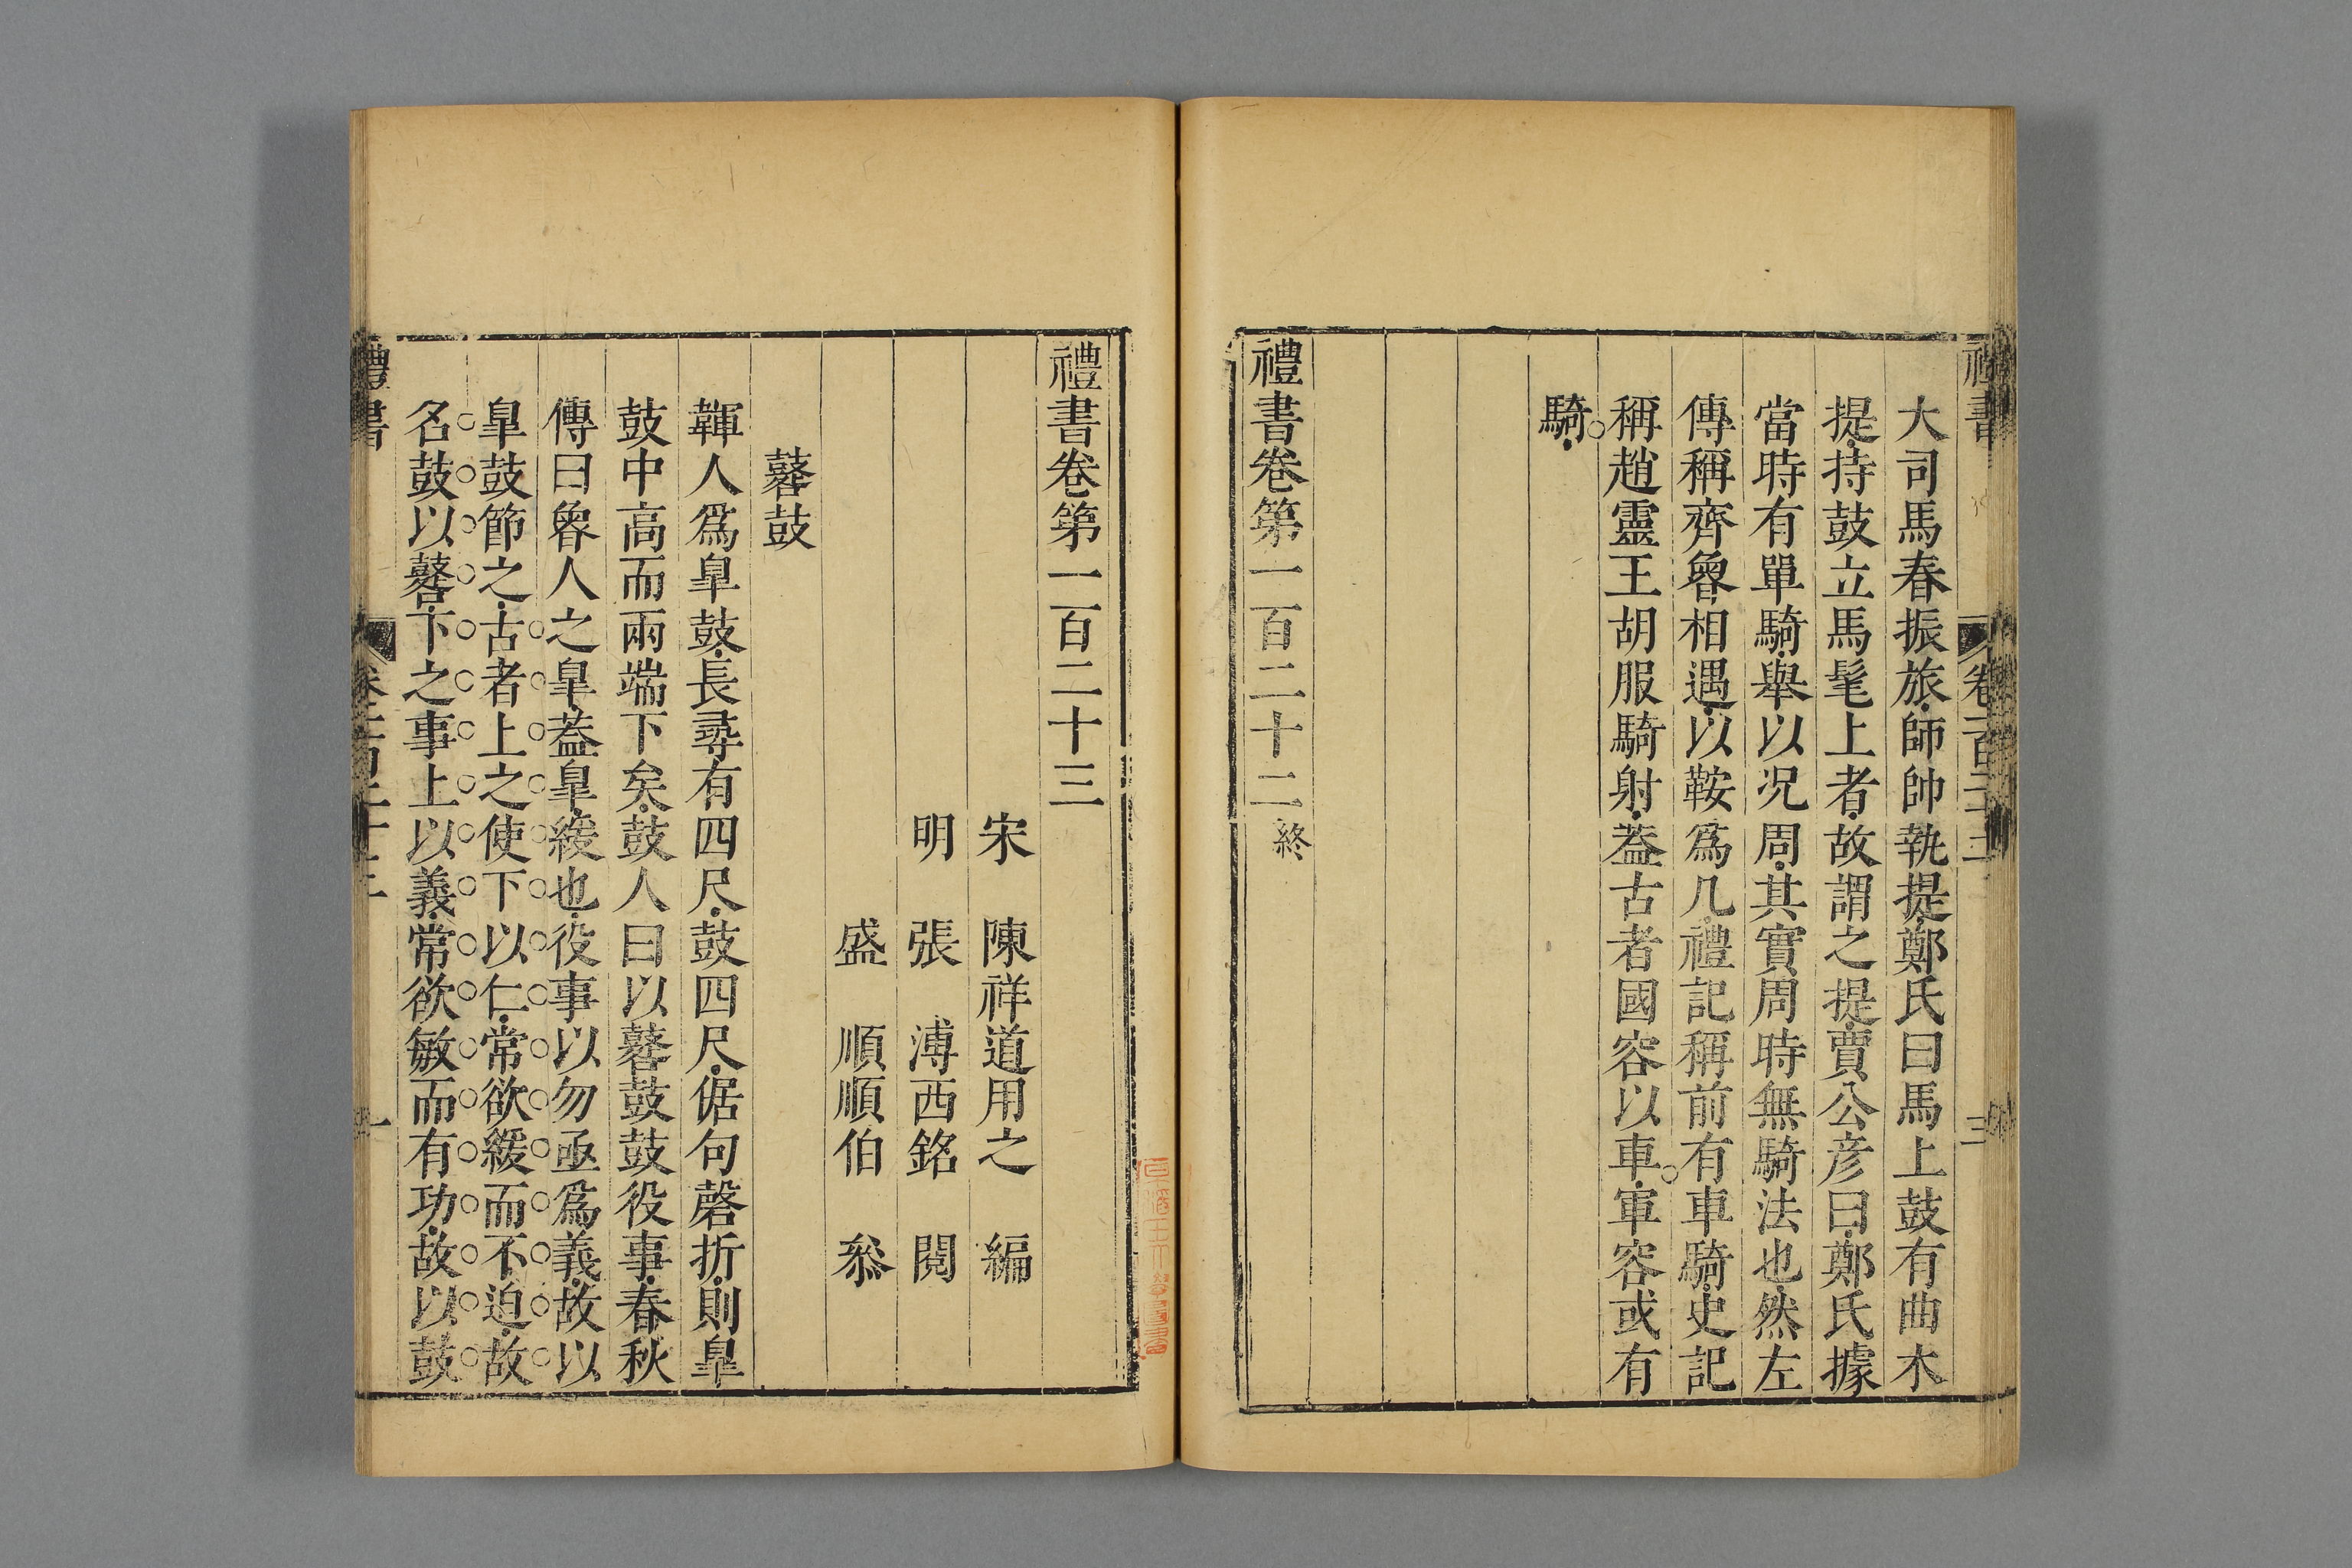 大司馬春振旅師帥執提鄭氏曰馬上鼓有曲木
提持鼓立馬髦上者故謂之提賈公彦曰鄭氏據
當時有單騎舉以况周其實周時無騎法也然左
傳稱齊魯相遇以鞍爲几禮記稱前有車騎史記
稱趙靈王胡服騎射葢古者國容以車軍容或有
騎
禮書卷第一百二十二終
禮書卷第一百二十三
宋 陳祥道用之 編
明 張溥西銘 閱
盛順順伯 叅
鼛鼓
韗人爲臯鼓長尋有四尺鼓四尺倨句磬折則臯
鼓中高而兩端下矣鼓人曰以鼛鼓鼓役事春秋
傳曰魯人之臯葢臯緩也役事以勿亟爲義故以
臯鼓節之古者上之使下以仁常欲緩而不迫故
名鼓以鼛下之事上以義常欲敏而有功故以鼓
禮書